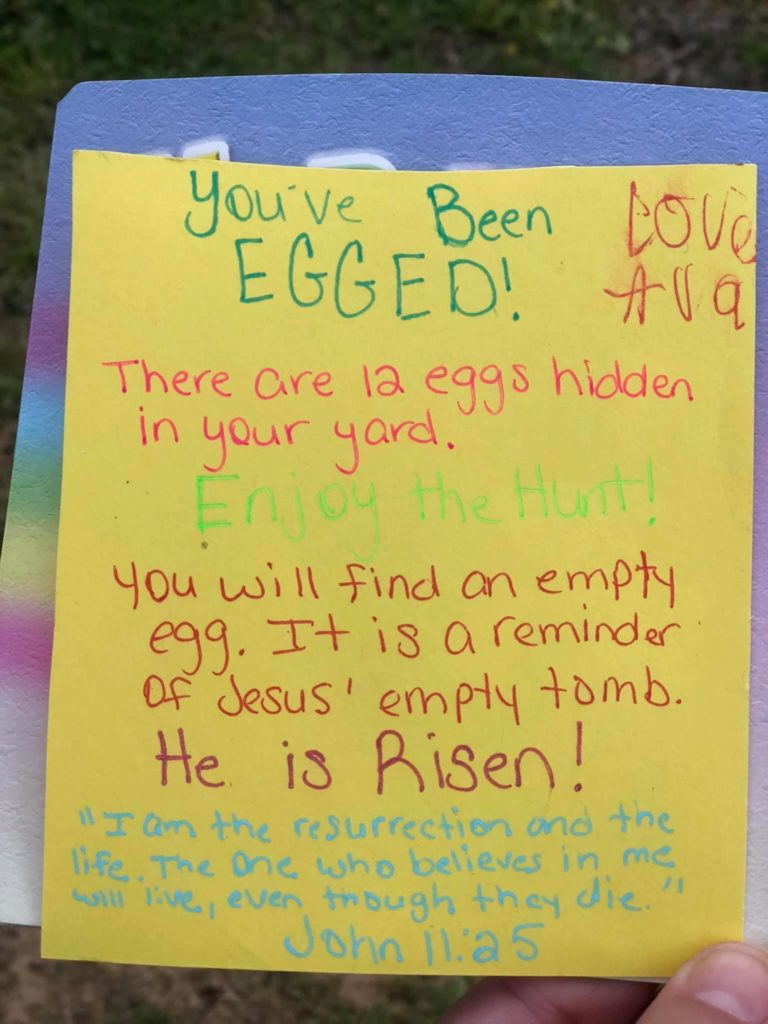 You've Been
EGGED!
LOVe
AVa
There are 12 eggs hidden
in your yard.
Enjoy the Hunt!
You will find an empty
egg. It is a reminder
of Jesus' empty tomb.
He is Risen!
"I am the resurrection and the
life. The one who believes in me
will live, even though they die."
John 11:25